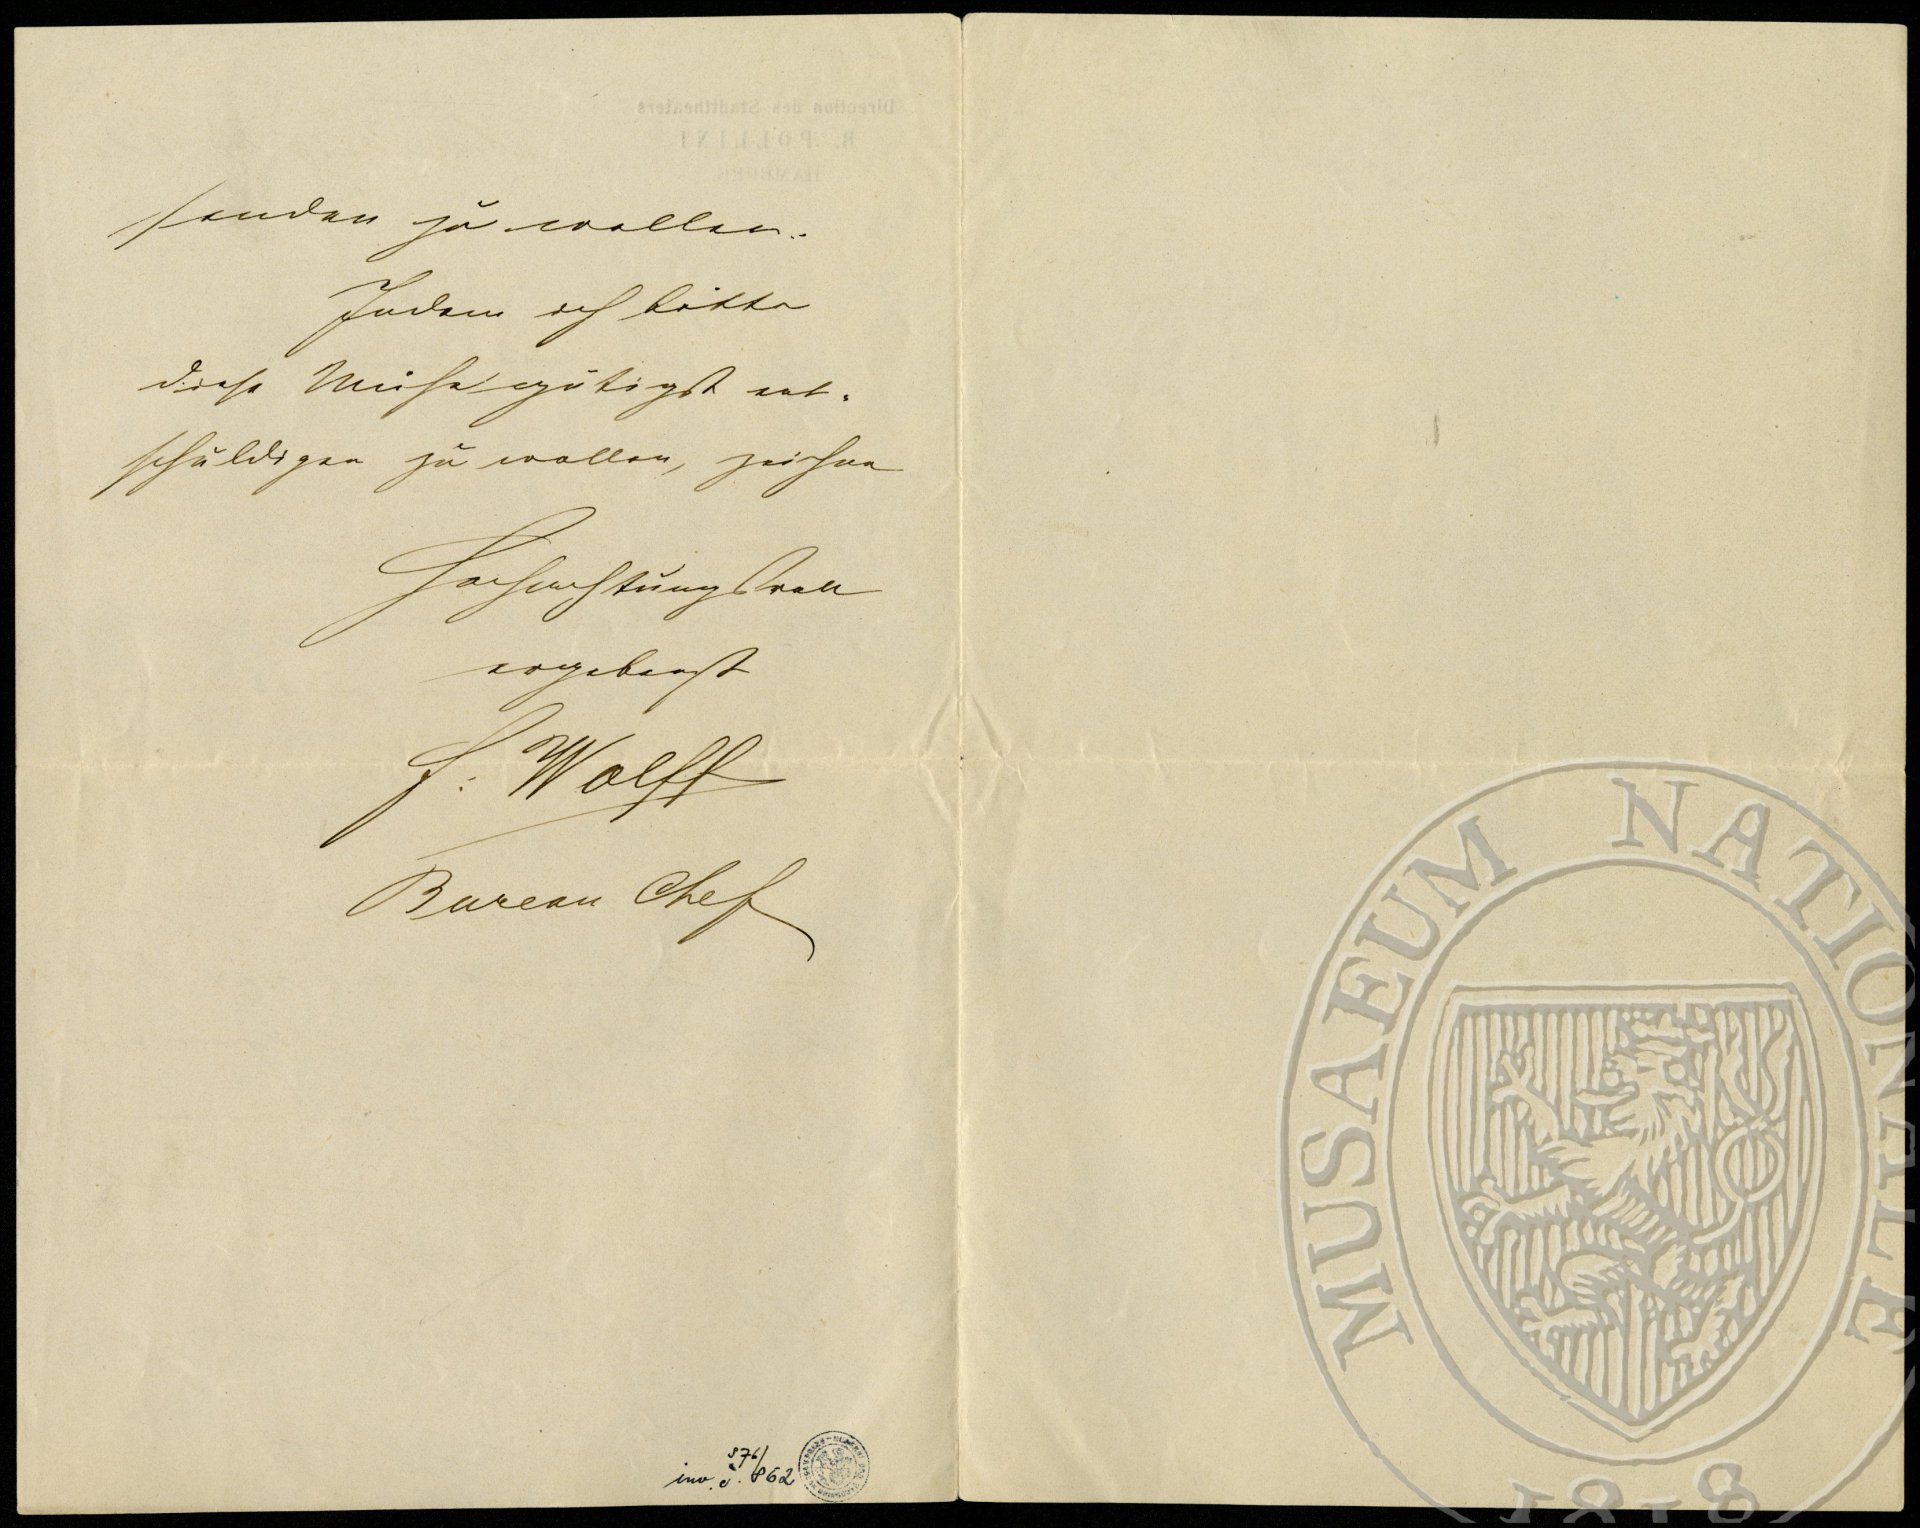 Direction des Stadttheaters
B. POLLINI
HAMBURG
senden zu wollen.
Indem ich bitte
diese Mühe gütigst ent-
schuldigen zu wollen, zeichne
Hochachtungsvoll
ergebenst
F: Wolff
Bureau Chef
S76/
inv. č. 862
MUSAEUM NATIONALE
1818